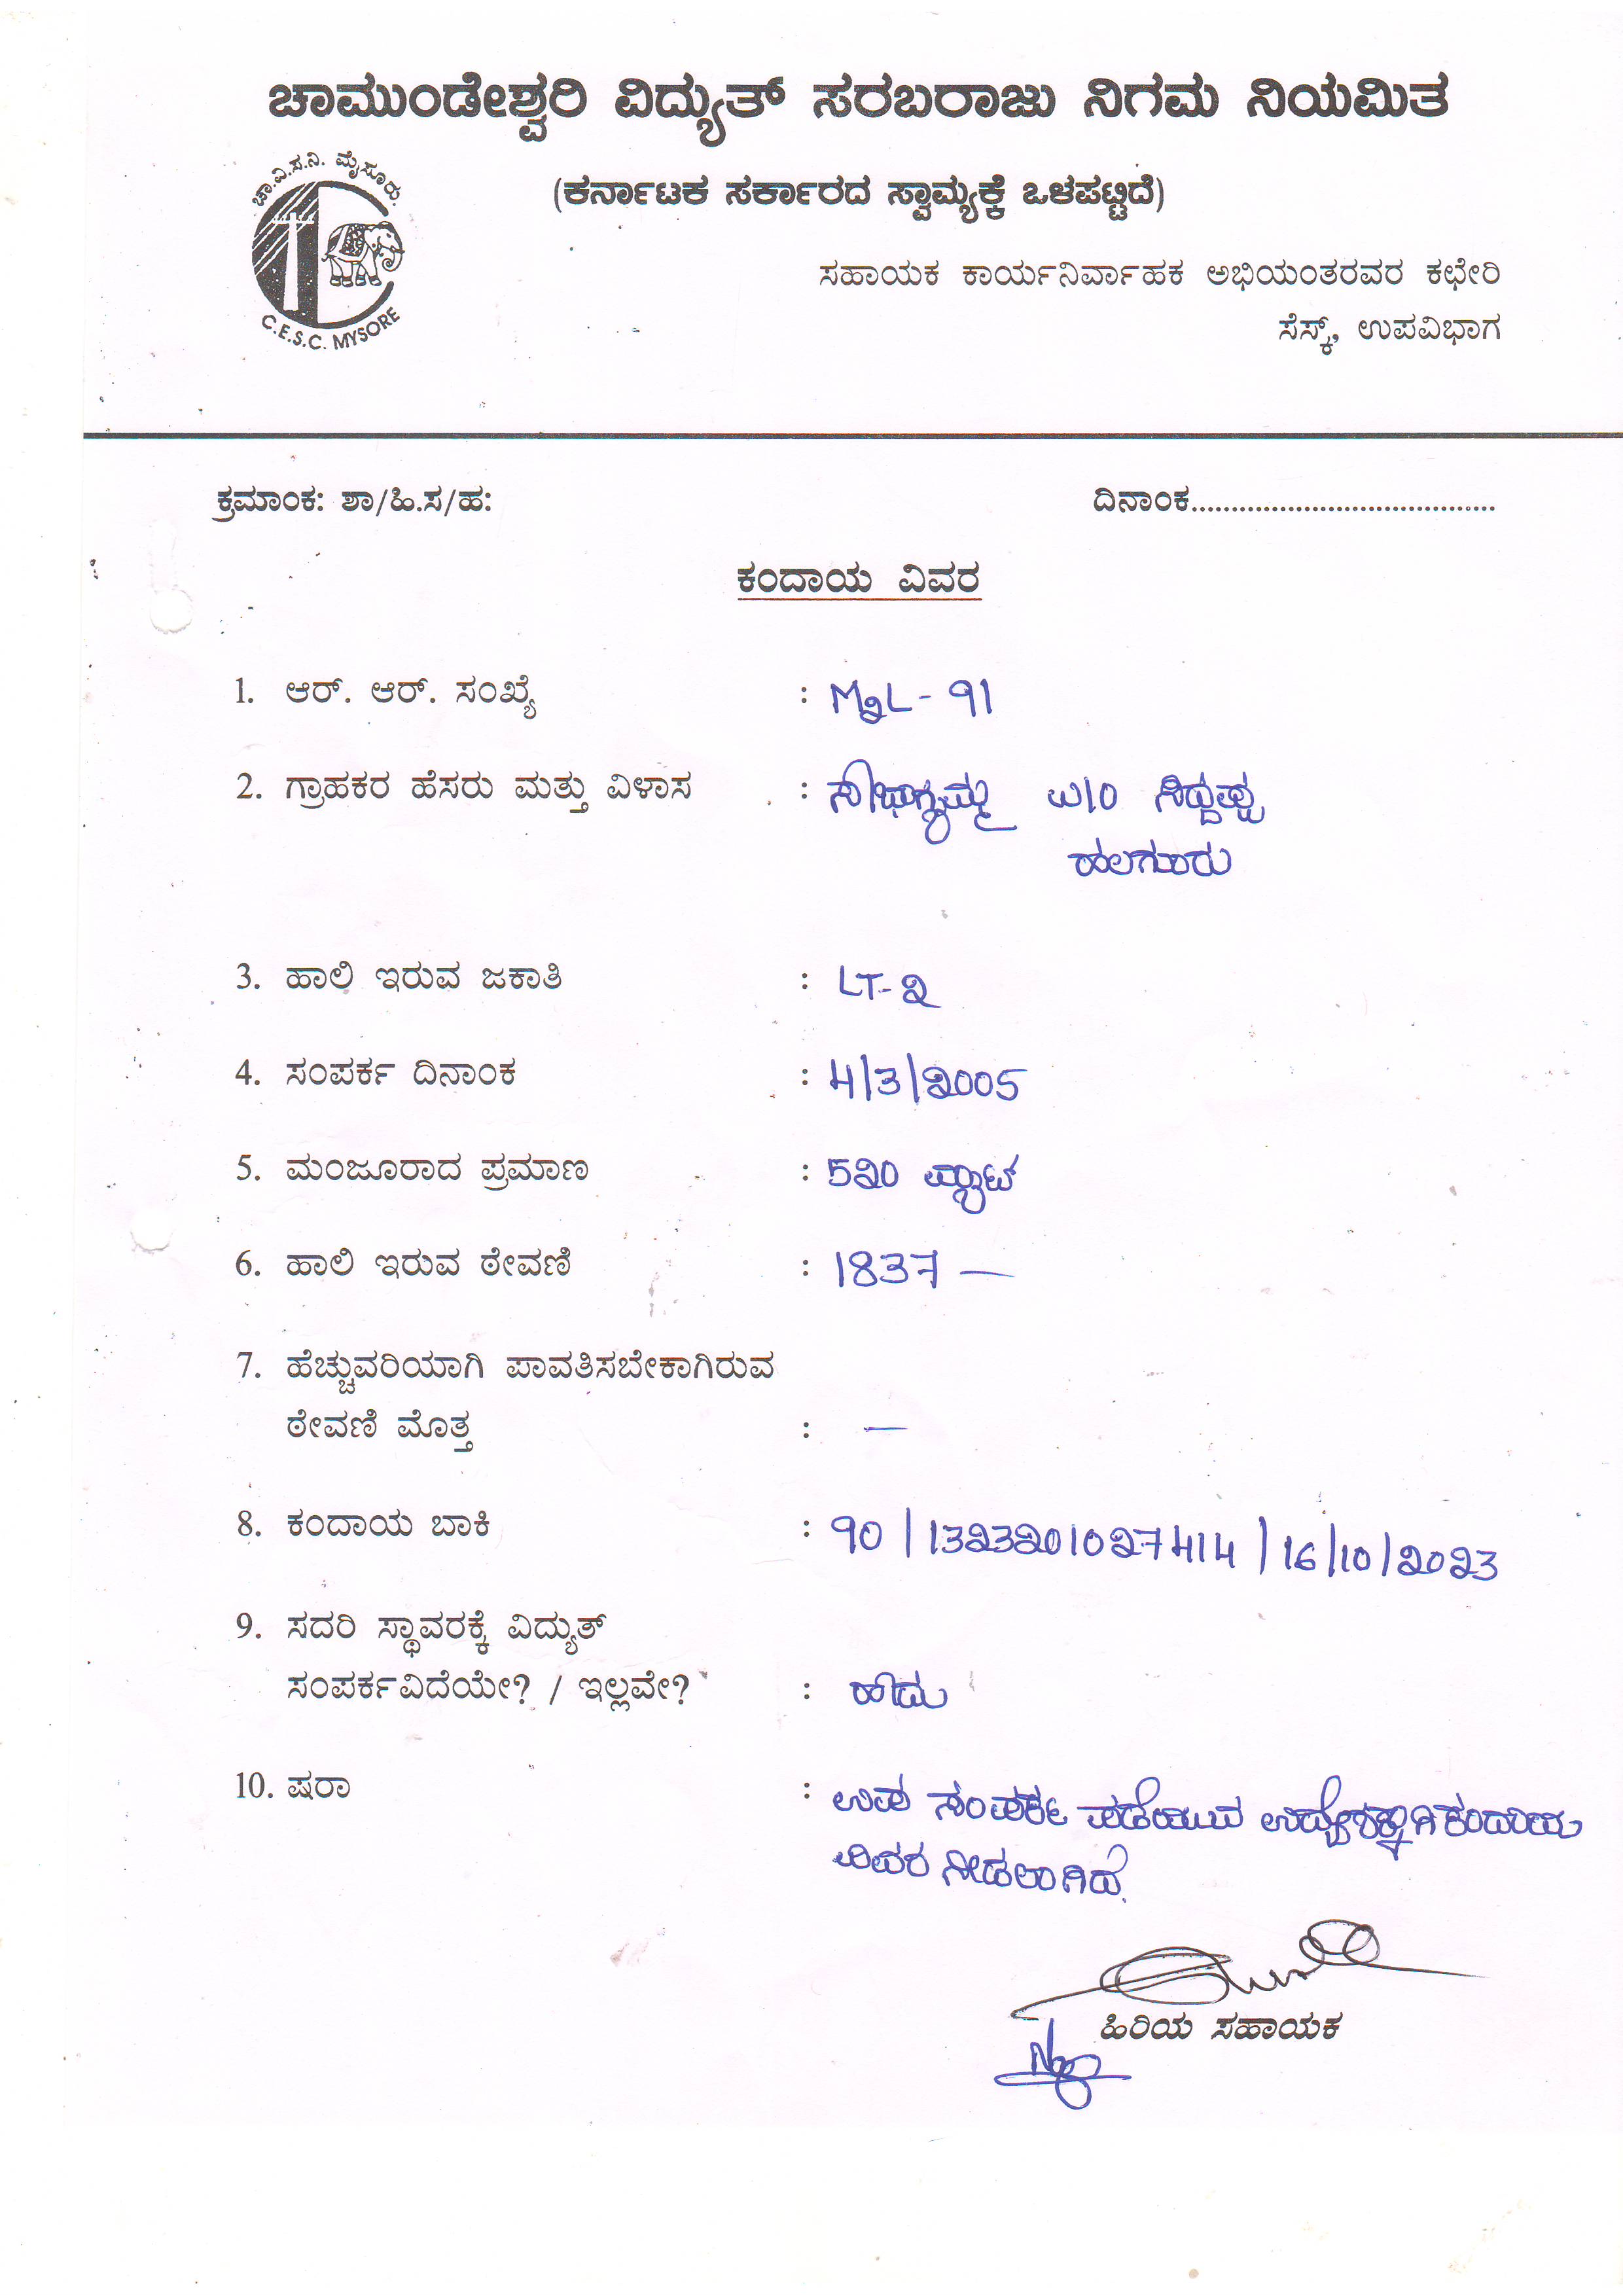 ಚಾಮುಂಡೇಶ್ವರಿ ವಿದ್ಯುತ್ ಸರಬರಾಜು ನಿಗಮ ನಿಯಮಿತ
ಚಾ.ವಿ.ಸ.ನಿ. ಮೈಸೂರು.
(ಕರ್ನಾಟಕ ಸರ್ಕಾರದ ಸ್ವಾಮ್ಯಕ್ಕೆ ಒಳಪಟ್ಟಿದೆ)
ಸಹಾಯಕ ಕಾರ್ಯನಿರ್ವಾಹಕ ಅಭಿಯಂತರವರ ಕಛೇರಿ
C.E.S.C. MYSORE
ಸೆಸ್ಕ್, ಉಪವಿಭಾಗ
ಕ್ರಮಾಂಕ: ಶಾ/ಹಿ.ಸ/ಹ: ದಿನಾಂಕ......................................
ಕಂದಾಯ ವಿವರ
1. ಆರ್. ಆರ್. ಸಂಖ್ಯೆ : M2L - 91
2. ಗ್ರಾಹಕರ ಹೆಸರು ಮತ್ತು ವಿಳಾಸ : ಸೌಭಾಗ್ಯಮ್ಮ W/O ಸಿದ್ದಪ್ಪ
ಹಲಗೂರು
3. ಹಾಲಿ ಇರುವ ಜಕಾತಿ : LT-2
4. ಸಂಪರ್ಕ ದಿನಾಂಕ : 4/3/2005
5. ಮಂಜೂರಾದ ಪ್ರಮಾಣ : 520 ವ್ಯಾಟ್
6. ಹಾಲಿ ಇರುವ ಠೇವಣಿ : 1837 —
7. ಹೆಚ್ಚುವರಿಯಾಗಿ ಪಾವತಿಸಬೇಕಾಗಿರುವ
ಠೇವಣಿ ಮೊತ್ತ : —
8. ಕಂದಾಯ ಬಾಕಿ : 90 / 1323201027414 / 16/10/2023
9. ಸದರಿ ಸ್ಥಾವರಕ್ಕೆ ವಿದ್ಯುತ್
ಸಂಪರ್ಕವಿದೆಯೇ? / ಇಲ್ಲವೇ? : ಹೌದು
10. ಷರಾ : ಉಪ ಸಂಪರ್ಕ ಪಡೆಯುವ ಉದ್ದೇಶಕ್ಕಾಗಿ ಕಂದಾಯ
ವಿವರ ನೀಡಲಾಗಿದೆ.
ಹಿರಿಯ ಸಹಾಯಕ